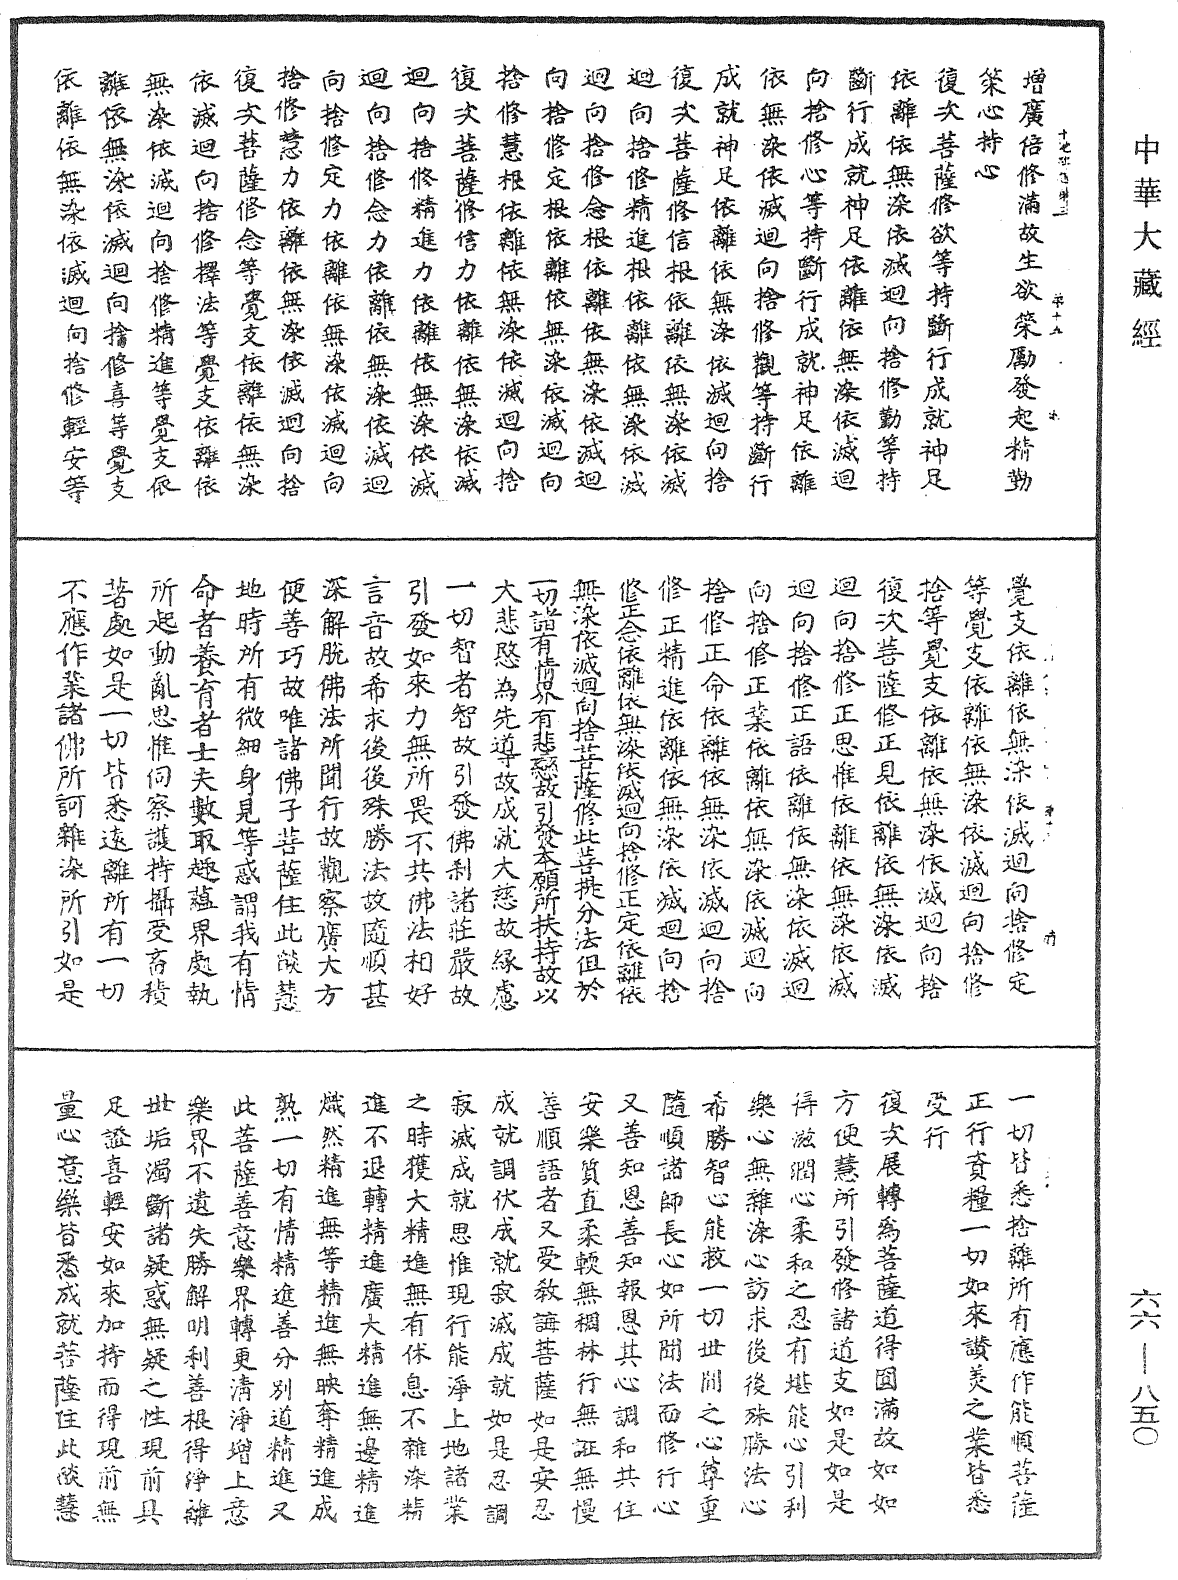 中華大藏經
增廣倍修滿故生欲策勵發起精勤
策心持心
復次菩薩修欲等持斷行成就神足
依離依無染依滅迴向捨修勤等持
斷行成就神足依離依無染依滅迴
向捨修心等持斷行成就神足依離
依無染依滅迴向捨修觀等持斷行
成就神足依離依無染依滅迴向捨
復次菩薩修信根依離依無染依滅
迴向捨修精進根依離依無染依滅
迴向捨修念根依離依無染依滅迴
向捨修定根依離依無染依滅迴向
捨修慧根依離依無染依滅迴向捨
復次菩薩修信力依離依無染依滅
迴向捨修精進力依離依無染依滅
迴向捨修念力依離依無染依滅迴
向捨修定力依離依無染依滅迴向
捨修慧力依離依無染依滅迴向捨
復次菩薩修念等覺支依離依無染
依滅迴向捨修擇法等覺支依離依
無染依滅迴向捨修精進等覺支依
離依無染依滅迴向捨修喜等覺支
依離依無染依滅迴向捨修輕安等
覺支依離依無染依滅迴向捨修定
等覺支依離依無染依滅迴向捨修
捨等覺支依離依無染依滅迴向捨
復次菩薩修正見依離依無染依滅
迴向捨修正思惟依離依無染依滅
迴向捨修正語依離依無染依滅迴
向捨修正業依離依無染依滅迴向
捨修正命依離依無染依滅迴向捨
修正精進依離依無染依滅迴向捨
修正念依離依無染依滅迴向捨修正定依離依
無染依滅迴向捨菩薩修此菩提分法但於
一切諸有情界有悲愍故引發本願所扶持故以
大悲愍為先導故成就大慈故緣慮
一切智者智故引發佛刹諸莊嚴故
引發如來力無所畏不共佛法相好
言音故希求後後殊勝法故隨順甚
深解脫佛法所聞行故觀察廣大方
便善巧故唯諸佛子菩薩住此焰慧
地時所有微細身見等惑謂我有情
命者養育者士夫數取趣蘊界處執
所起動亂思惟伺察護持攝受畜積
著處如是一切皆悉遠離所有一切
不應作業諸佛所訶雜染所引如是
一切皆悉捨離所有應作能順菩薩
正行資糧一切如來讚美之業皆悉
受行
復次展轉為菩薩道得圓滿故如如
方便慧所引發修諸道支如是如是
得滋潤心柔和之忍有堪能心引利
樂心無雜染心訪求後後殊勝法心
希勝智心能救一切世間之心尊重
隨順諸師長心如所聞法而修行心
又善知恩善知報恩其心調和共住
安樂質直柔輭無稠林行無誑無慢
善順語者又受教誨菩薩如是安忍
成就調伏成就寂滅成就如是忍調
寂滅成就思惟現行能淨上地諸業
之時獲大精進無有休息不雜染精
進不退轉精進廣大精進無邊精進
熾然精進無等精進無映奪精進成
熟一切有情精進善分別道精進又
此菩薩善意樂界轉更清淨增上意
樂界不遺失勝解明利善根得淨離
世垢濁斷諸疑惑無疑之性現前具
足證喜輕安如來加持而得現前無
量心意樂皆悉成就菩薩住此焰慧
六六—八五〇